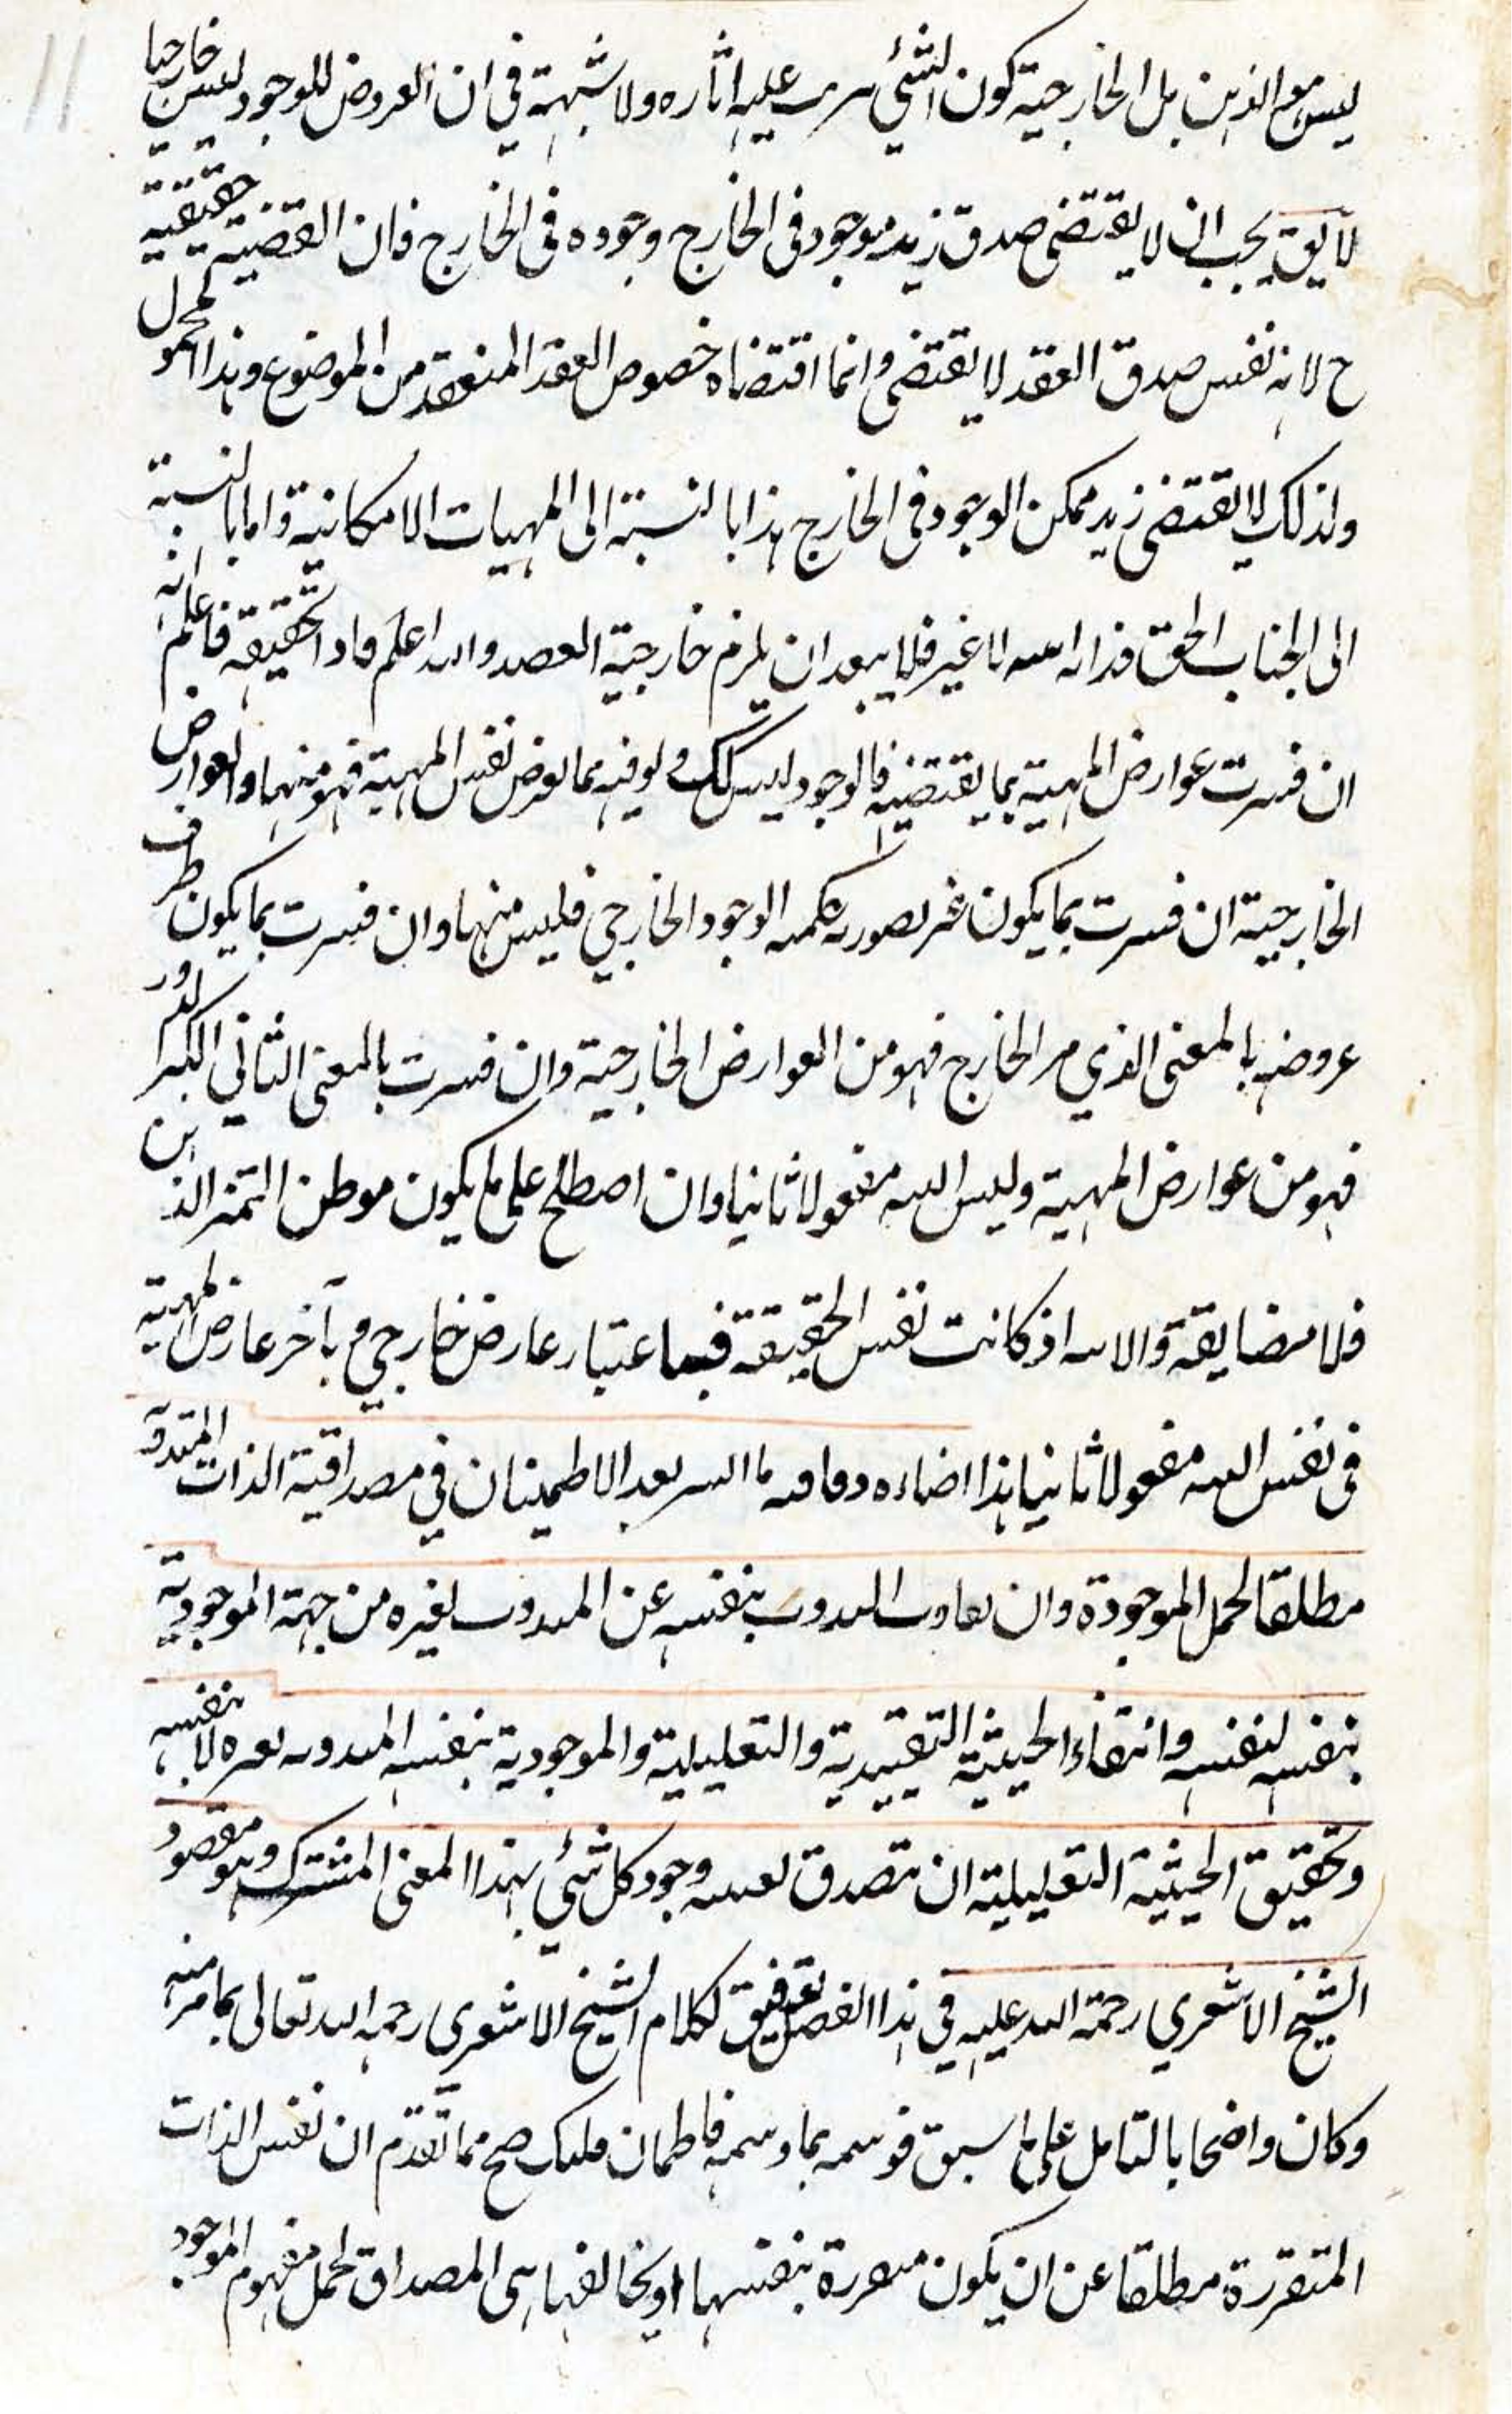 ليس مع الذهن بل الخارجية كون الشئ يترتب عليه اثاره ولا شبهة في ان العروض للموجود ليس خارجيا
لا يق يجب ان لا يقتضى صدق زيد موجود فى الخارج وجوده فى الخارج فان القضية حقيقية
ح لانه نفس صدق العقد لا يقتضى وانما اقتضاه خصوص العقد المنعقد من الموضوع وهذا المحمول
ولذلك لا يقتضى زيد ممكن الوجود فى الخارج هذا بالنسبة الى المهيات الامكانية واما بالنسبة
الى الجناب الحق لا غير فلا يبعد ان يلزم خارجية والله اعلم فاعلم انه
ان فسرت عوارض المهية بما يقتضيه فالوجود ليس كك ولو فيه بما يعرض نفس المهية فهو منها والعوارض
الخارجية ان فسرت بما يكون الوجود الخارجي فليس منها وان فسرت بما يكون ظرف
عروضه بالمعنى الذي مر الخارج فهو من العوارض الخارجية وان فسرت بالمعنى الثاني
فهو من عوارض المهية وليس معقولا ثانيا وان اصطلح على ما يكون موطن الذهن
فلا مضايقة والا اذ كانت نفس الحقيقة فباعتبار عارض خارجي و بآخر عارض المهية
فى نفس معقولا ثانيا هذا بعد الاطمينان في مصداقية الذات المتقررة
مطلقا لحمل الموجودة وان بنفسه عن لغيره من جهة الموجودية
بنفسه لنفسه وانتفاء الحيثية التقييدية والتعليلية والموجودية بنفسه لا بنفسه
وتحقيق الحيثية التعليلية ان تصدق وجود كل شئ بهذا المعنى المشترك وهو مقصود
الشيخ الاشعري رحمة الله عليه في هذا الفصل توفيق لكلام الشيخ الاشعرى رحمه الله تعالى بما مر منه
وكان واضحا بالتامل على ما سبق بما صح مما تقدم ان نفس الذات
المتقررة مطلقا عن ان يكون متقررة بنفسها او يخالفها هى المصداق لحمل مفهوم الموجود